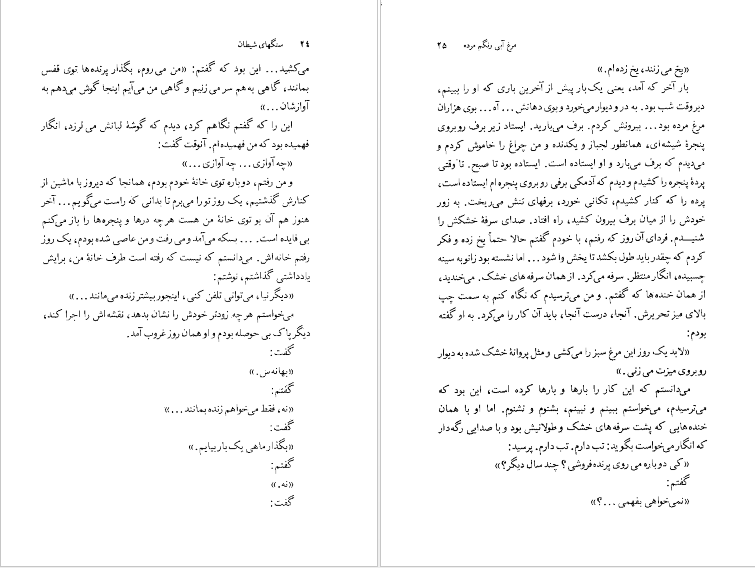 ۲۴ سنگهای شیطان
می‌کشید... این بود که گفتم: «من می‌روم، بگذار پرنده‌ها توی قفس
بمانند، گاهی به هم سر می‌زنیم و گاهی من می‌آیم اینجا گوش می‌دهم به
آوازشان...»
این را که گفتم نگاهم کرد، دیدم که گوشهٔ لبانش می لرزد، انگار
فهمیده بود که من فهمیده‌ام. آنوقت گفت:
«چه آوازی... چه آوازی...»
و من رفتم، دوباره توی خانهٔ خودم بودم، همانجا که دیروز با ماشین از
کنارش گذشتیم، یک روز تو را می‌برم تا بدانی که راست می‌گویم... آخر
هنوز هم آن بو توی خانهٔ من هست هر چه درها و پنجره‌ها را باز می‌کنم
بی فایده است. ... بسکه می‌آمد و می‌رفت و من عاصی شده بودم، یک روز
رفتم خانه‌اش. می‌دانستم که نیست که رفته است طرف خانهٔ من، برایش
یادداشتی گذاشتم، نوشتم:
«دیگر نیا، می‌توانی تلفن کنی، اینجور بیشتر زنده می‌مانند...»
می‌خواستم هر چه زودتر خودش را نشان بدهد، نقشه‌اش را اجرا کند،
دیگر پاک بی حوصله بودم و او همان روز غروب آمد.
گفت:
«بهانه س.»
گفتم:
«نه، فقط می‌خواهم زنده بمانند...»
گفت:
«بگذار ماهی یک بار بیایم.»
گفتم:
«نه.»
گفت:
مرغ آبی رنگم مرده ۲۵
«یخ می‌زنند، یخ زده‌ام.»
بار آخر که آمد، یعنی یک بار پیش از آخرین باری که او را ببینم،
دیروقت شب بود. به در و دیوار می‌خورد و بوی دهانش، ... آه... بوی هزاران
مرغ مرده بود... بیرونش کردم. برف می‌بارید. ایستاد زیر برف روبروی
پنجرهٔ شیشه‌ای، همانطور لجباز و یکدنده و من چراغ را خاموش کردم و
می‌دیدم که برف می‌بارد و او ایستاده است. ایستاده بود تا صبح. تا وقتی
پردهٔ پنجره را کشیدم و دیدم که آدمکی برفی روبروی پنجره ام ایستاده است،
پرده را که کنار کشیدم، تکانی خورد، برفهای تنش می‌ریخت. به زور
خودش را از میان برف بیرون کشید، راه افتاد. صدای سرفهٔ خشکش را
شنیدم. فردای آن روز که رفتم، با خودم گفتم حالا حتماً یخ زده و فکر
کردم که چقدر باید طول بکشد تا یخش وا شود... اما نشسته بود زانو به سینه
چسبیده، انگار منتظر. سرفه می‌کرد. از همان سرفه های خشک. می‌خندید،
از همان خنده‌ها که گفتم. و من می‌ترسیدم که نگاه کنم به سمت چپ
بالای میز تحریرش. آنجا، درست آنجا، باید آن کار را می‌کرد. به او گفته
بودم:
«لابد یک روز این مرغ سبز را می‌کشی و مثل پروانهٔ خشک شده به دیوار
روبروی میزت می زنی.»
می‌دانستم که این کار را بارها و بارها کرده است، این بود که
می‌ترسیدم، می‌خواستم ببینم و نبینم، بشنوم و نشنوم. اما او با همان
خنده‌هایی که پشت سرفه‌های خشک و طولانیش بود و با صدایی رگه‌دار
که انگار می‌خواست بگوید: تب دارم. تب دارم. پرسید:
«کی دوباره می روی پرنده‌فروشی؟ چند سال دیگر؟»
گفتم:
«نمی‌خواهی بفهمی...؟»